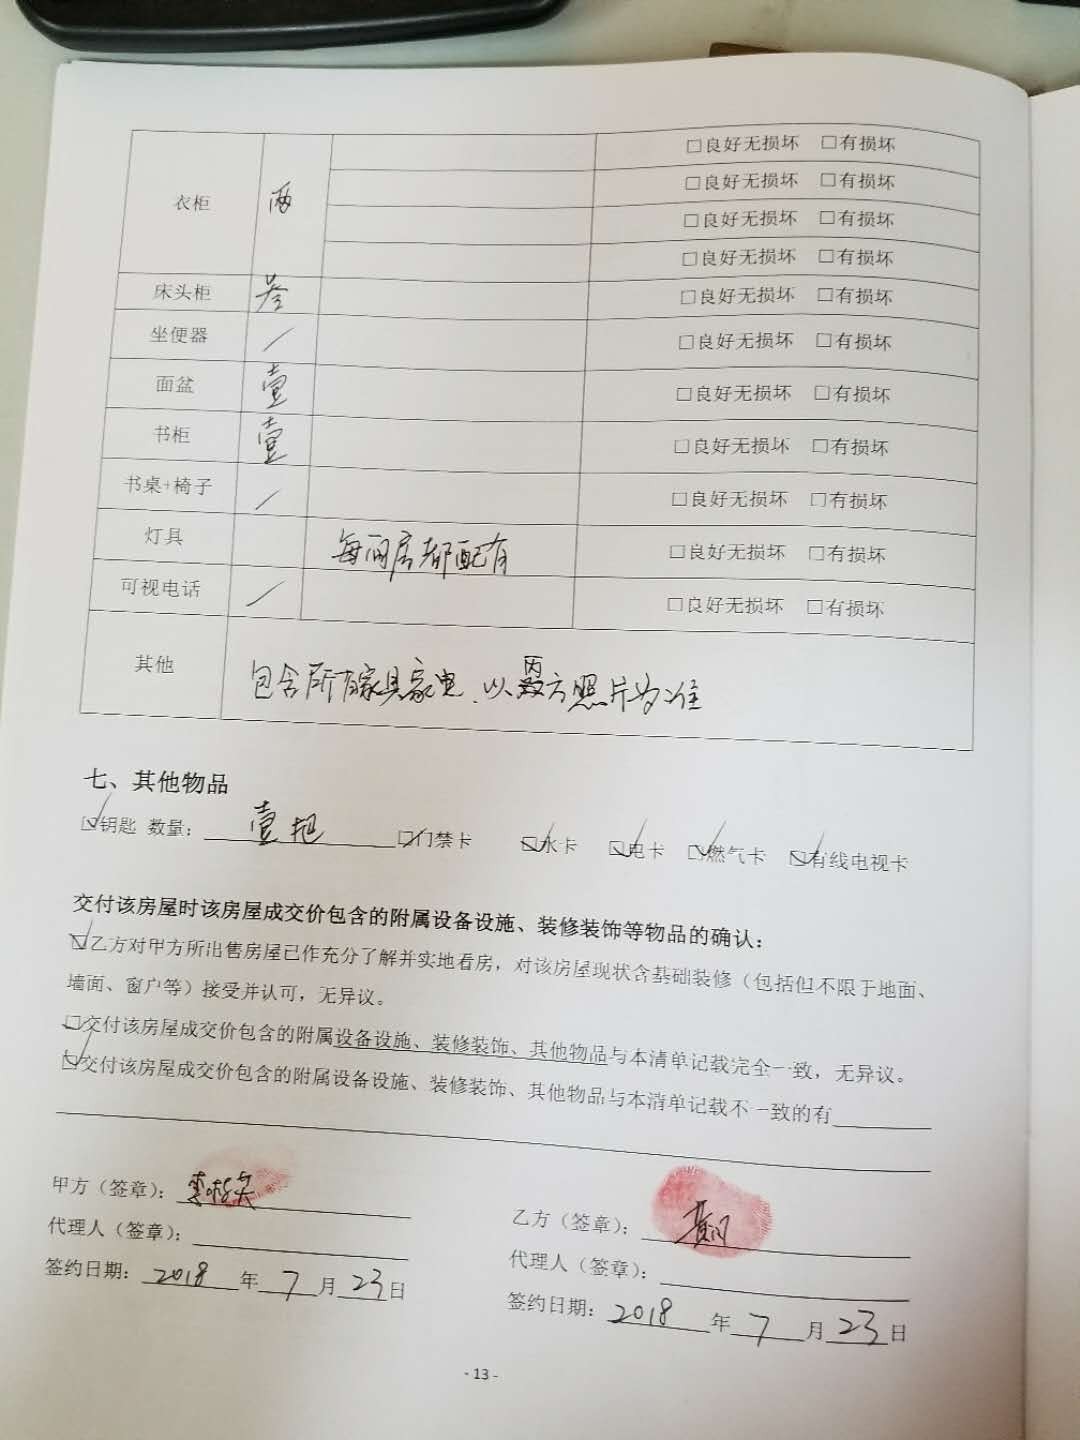 □良好无损坏 □有损坏
□良好无损坏 □有损坏
衣柜 两
□良好无损坏 □有损坏
□良好无损坏 □有损坏
床头柜 叁 □良好无损坏 □有损坏
坐便器 / □良好无损坏 □有损坏
面盆 壹 □良好无损坏 □有损坏
书柜 壹 □良好无损坏 □有损坏
书桌+椅子 / □良好无损坏 □有损坏
灯具 每间房都配有 □良好无损坏 □有损坏
可视电话 / □良好无损坏 □有损坏
其他 包含所有家具家电,以丙方照片为准
七、其他物品
☑钥匙 数量:壹把 ☑门禁卡 ☑水卡 ☑电卡 ☑燃气卡 ☑有线电视卡
交付该房屋时该房屋成交价包含的附属设备设施、装修装饰等物品的确认:
☑乙方对甲方所出售房屋已作充分了解并实地看房,对该房屋现状含基础装修(包括但不限于地面、
墙面、窗户等)接受并认可,无异议。
□交付该房屋成交价包含的附属设备设施、装修装饰、其他物品与本清单记载完全一致,无异议。
☑交付该房屋成交价包含的附属设备设施、装修装饰、其他物品与本清单记载不一致的有
甲方(签章):
乙方(签章):
代理人(签章):
代理人(签章):
签约日期:2018年7月23日
签约日期:2018年7月23日
- 13 -